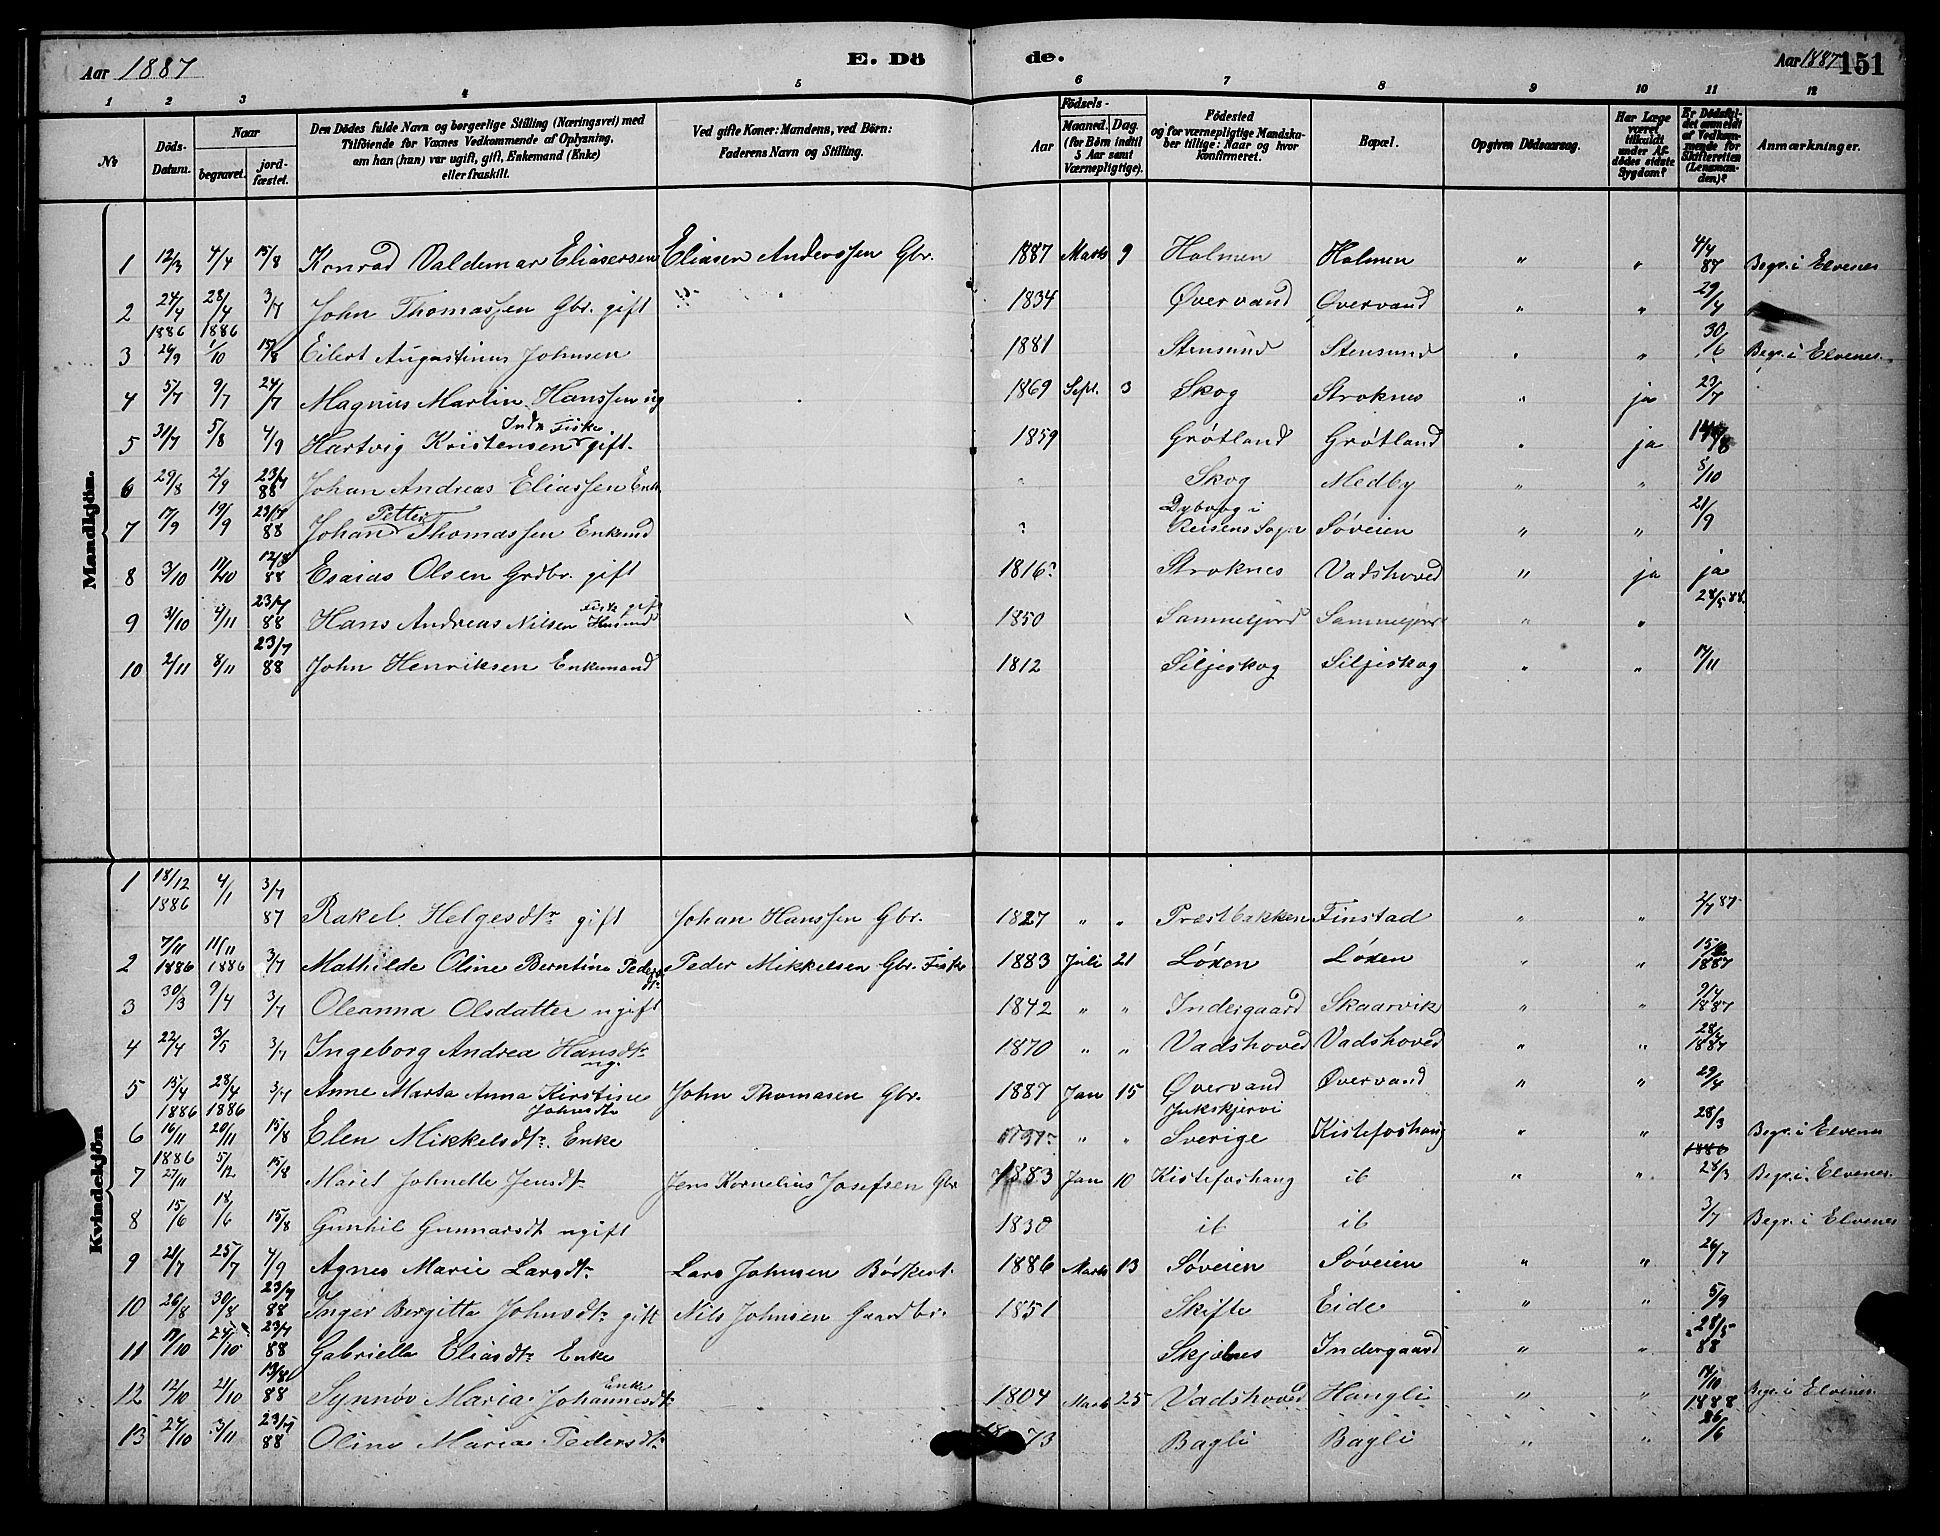 Aar 1887 E. Dö de. Aar 1887 151
1 2 3 4 5 6 7 8 9 10 11 12
№ Döds-Datum. Naar begravet. jordfæstet. Den Dödes fulde Navn og borgerlige Stilling (Næringsvei) med Tilföiende for Voxnes Vedkommende af Oplysning, om han (hun) var ugift, gift, Enkemand (Enke) eller fraskilt. Ved gifte Koner: Mandens, ved Börn: Faderens Navn og Stilling. Aar Födsels- Maaned. Dag. (for Börn indtil 5 Aar samt Værnepligtige). Födested og for værnepligtige Mandskaber tillige: Naar og hvor konfirmeret. Bopæl. Opgiven Dödsaarsag. Har Læge været tilkaldt under Afdödes sidste Sygdom? Er Dödsfaldet anmeldt af Vedkommende for Skifteretten (Lensmanden)? Anmærkninger.
Mandkjön.
1 12/3 4/4 15/8 Konrad Valdemar Eliasersen Eliasen Anderssen Gbr. 1887 Marts 9 Holmen Holmen " " 4/4 87 Begr. i Elvenes
2 24/4 28/4 3/7 John Thomassen Gbr. gift 1834 Øvervand Øvervand " " 29/4
3 1886 26/9 1886 1/10 15/8 Eilert Augustinus Johnsen 1881 Stensund Stensund " " 30/6 Begr. i Elvenes.
4 5/7 9/7 24/7 Magnus Martin Hanssen ug 1869 Sept. 3 Skog Stroknes " ja 23/7
5 31/7 5/8 4/9 Hartvig Kristensen Inds Fisker gift. 1859 Grøtland Grøtland " ja
6 29/8 2/9 23/7 88 Johan Andreas Eliassen Enk. " Skog Medby " " 5/10
7 17/9 19/9 23/7 88 Johan Petter Thomassen Enkemd ? Dybvog i Reisens Sogn Søveien " " 21/9
8 3/10 11/10 12/8 88 Esaias Olsen Grdbr. gift 1816? Stroknes Vadshoved " ja ja
9 3/10 4/11 23/7 88 Hans Andreas Nilsen Fisk. gift Husmd 1850 Sammeljord Sammeljord " " 28/5 88.
10 2/11 8/11 23/7 88 John Henriksen Enkemand 1812 Siljeskog Siljeskog " " 17/11
Kvindekjön
1 18/12 1886 4/1 3/7 87 Rakel Helgesdtr gift Johan Hanssen Gbr. 1827 " " Præstbakken Finstad " " 2/7 87
2 7/11 1886 11/11 1886 3/7 Mathilde Oline Berntine Pedersdtr Peder Mikkelsen Gbr. Fisker 1883 Juli 21 Løxen Løxen " " 1887
3 30/3 9/4 3/7 Oleanna Olsdatter ugift 1842 " " Indergaard Skaarvik " " 9/4 1887
4 22/4 3/5 3/7 Ingeborg Andrea Hansdtr ug. 1870 " " Vadshoved Vadshoved " " 28/4 1887
5 15/4 28/4 3/7 Anne Marta Anna Kirstine Johnsdtr John Thomasen Gbr. 1887 Jan 15 Øvervand Øvervand " " 29/4
6 1886 16/11 1886 20/11 15/8 Elen Mikkelsdtr Enke " " Jukskjervi Sverige Kistefoshaug " " 28/3 Begr. i Elvenes
7 1886 27/11 5/12 15/8 Marit Johnette Jensdtr Jens Kornelius Josefsen Gbr 1883 Jan 10 Kistefoshaug ib " " 1886 28/3 Begr. i Elvenes.
8 15/6 18/6 15/8 Gunhil Gunnarsdt ugift 1830 ib ib 3/7 Begr. i Elvenes
9 21/7 25/7 4/9 Agnes Marie Larsdtr Lars Johnsen Bödkers. 1886 Marts 13 Søveien Søveien " " 26/7
10 26/8 30/8 23/7 88 Inger Bergitta Johnsdtr gift Nils Johnsen Gaardbr. 1851 Skifte Eide " " 5/9
11 17/10 24/10 23/7 88 Gabriella Eliasdtr Enke Skjelnes Indergaard " " 28/5 88
12 12/10 21/10 13/8 88 Synnøv Maria Johannesdtr Enke 1804 Marts 25 Vadshoved Hangli " " 17/10 1888 Begr. i Elvenes.
13 24/10 3/11 23/7 88 Oline Maria Pedersdtr 1873 Bagli Bagli " " 26/6